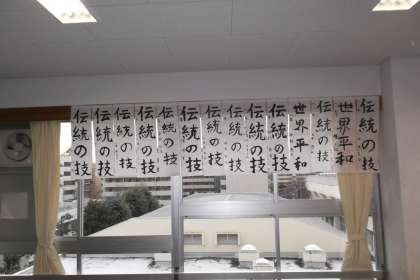 伝統の技
世界平和
伝統の技
世界平和
伝統の技
伝統の技
伝統の技
伝統の技
伝統の技
伝統の技
伝統の技
伝統の技
伝統の技
伝統の技